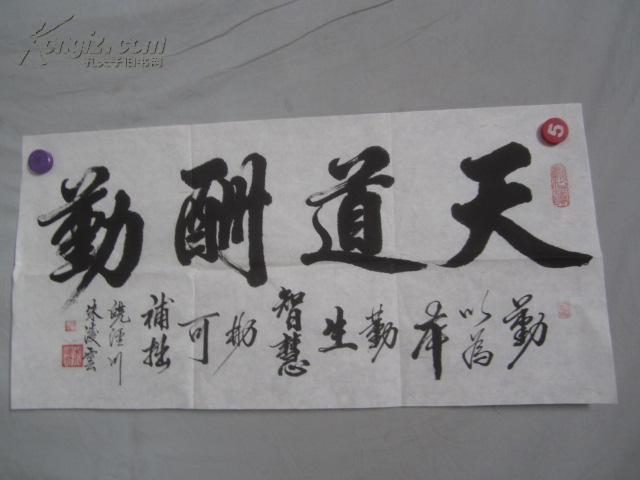 Kongfz.com
孔夫子旧书网
5
天道酬勤
勤以為本勤生智慧勤可補拙
皖涇川
凌雲